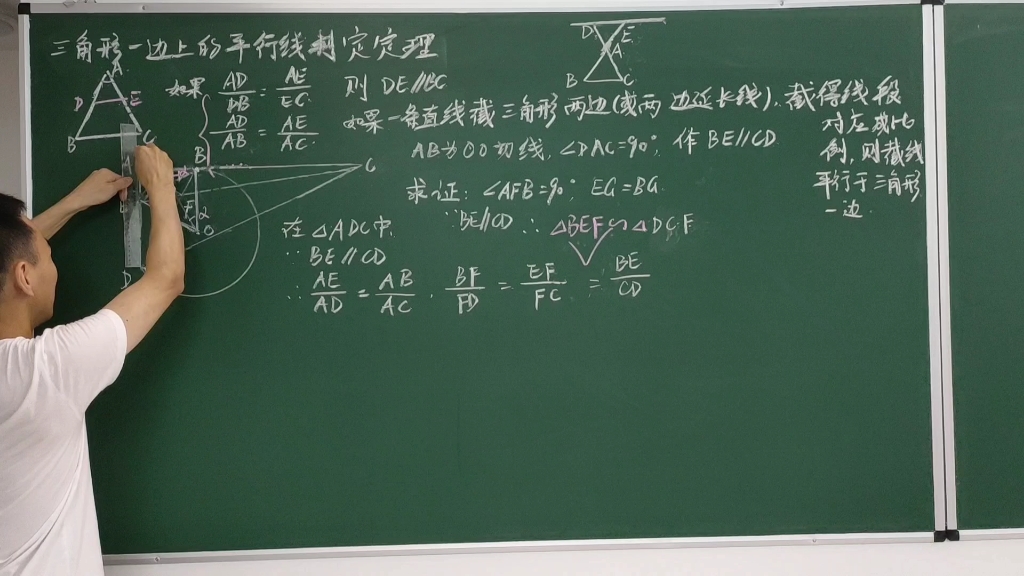 三角形一边上的平行线判定定理
A
D E
B C
如果 AD/DB = AE/EC
AD/AB = AE/AC
则 DE∥BC
D E
A
B C
如果一条直线截三角形两边(或两边延长线),截得线段
对应成比
例,则截线
平行于三角形
一边.
AB为⊙O切线,∠DAC=90°, 作BE∥CD
求证: ∠AFB=90° EG=BG
B C
F 2
O
D
在△ADC中,
∵ BE∥CD
∴ AE/AD = AB/AC .
∵BE∥CD ∴ △BEF∽△DCF
BF/FD = EF/FC = BE/CD